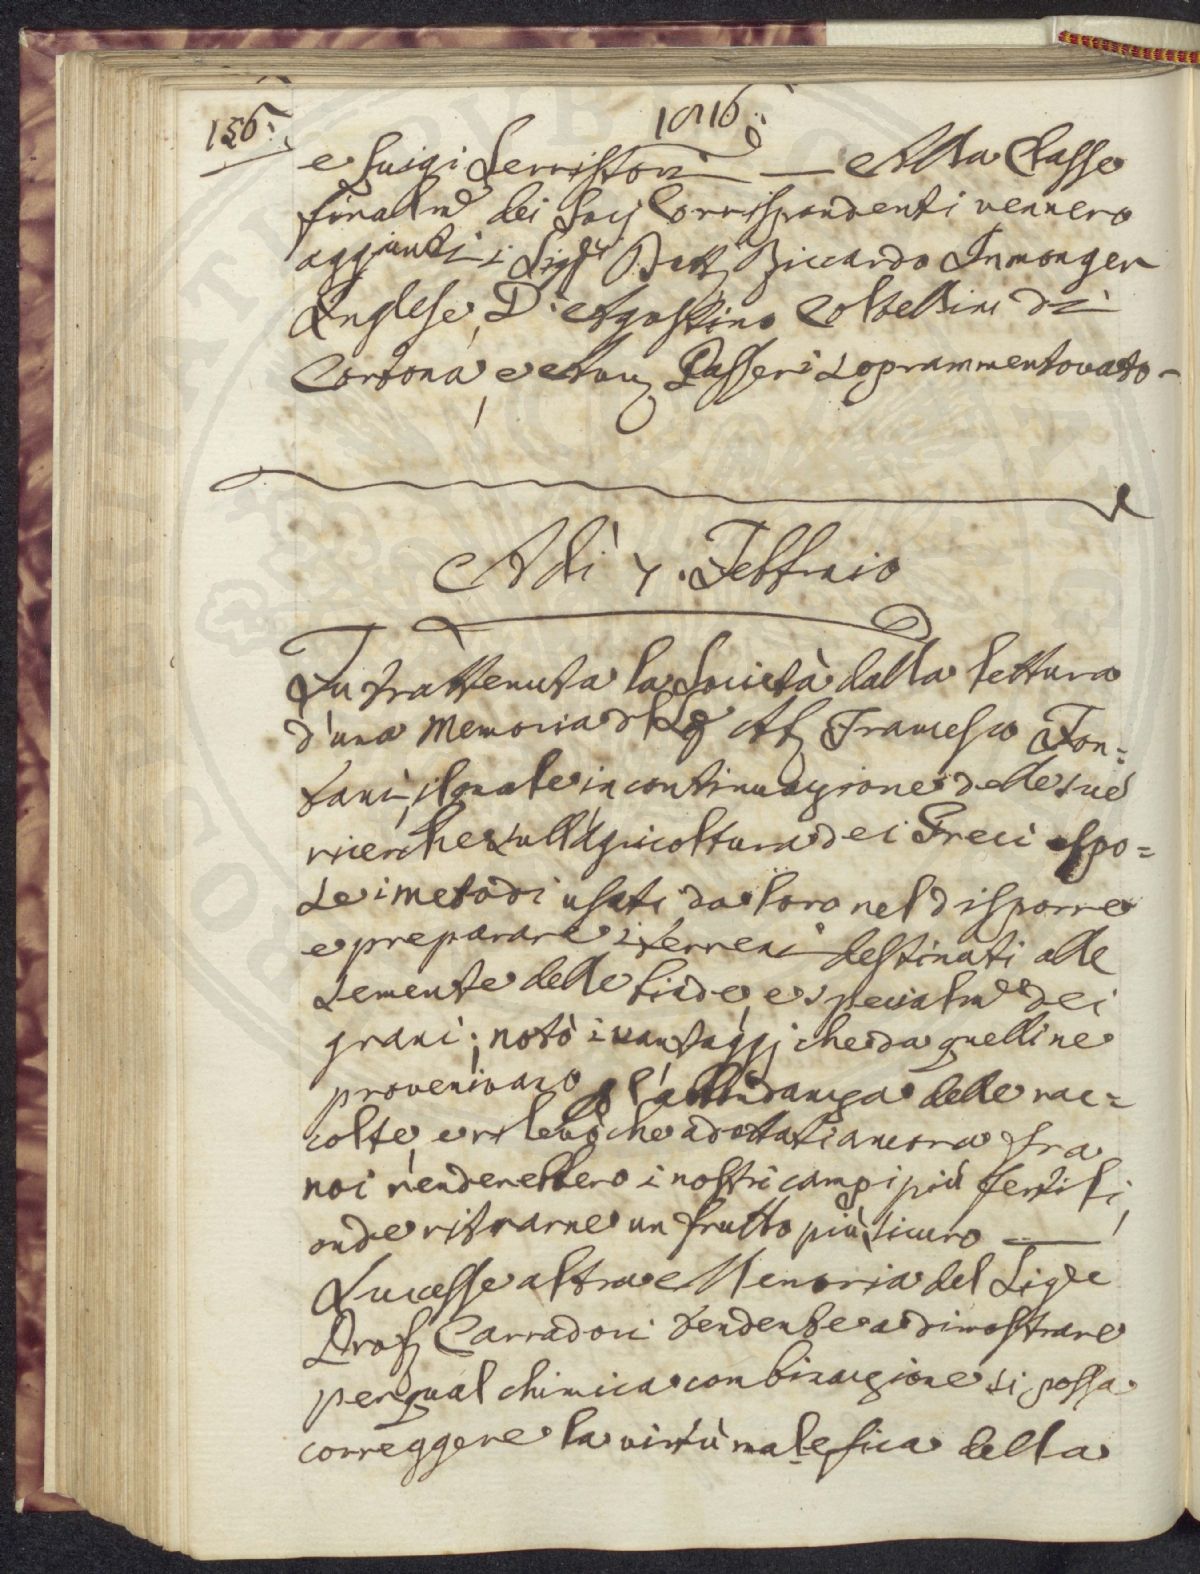 156.
1816.
e Luigi Serristori — Alla Classe
finalm.e dei Socj Corrispondenti vennero
aggiunti i Sigg.ri Dott. Riccardo
Inglese, D. Agostino Coltellini di
Cortona, e Passeri soprammentovato -
Adì 7. Febbraio
Fu trattenuta la Società dalla lettura
d'una Memoria del Francesco Fon=
tani, il quale in continuazione delle sue
ricerche sull'Agricoltura dei Greci espo=
se i metodi usati da loro nel disporre
e preparare i terreni destinati alle
semente delle biade, e specialm.e dei
grani; notò i vantaggj che da quelli ne
provenivano l'abbondanza delle rac=
colte, e rilevò che adottati ancora fra
noi renderebbero i nostri campi più fertili,
onde ritrarne un frutto più sicuro —
Successe altra Memoria del Sig.re
Prof. Carradori tendente a dimostrare
per qual chimica combinazione si possa
correggere la virtù malefica della